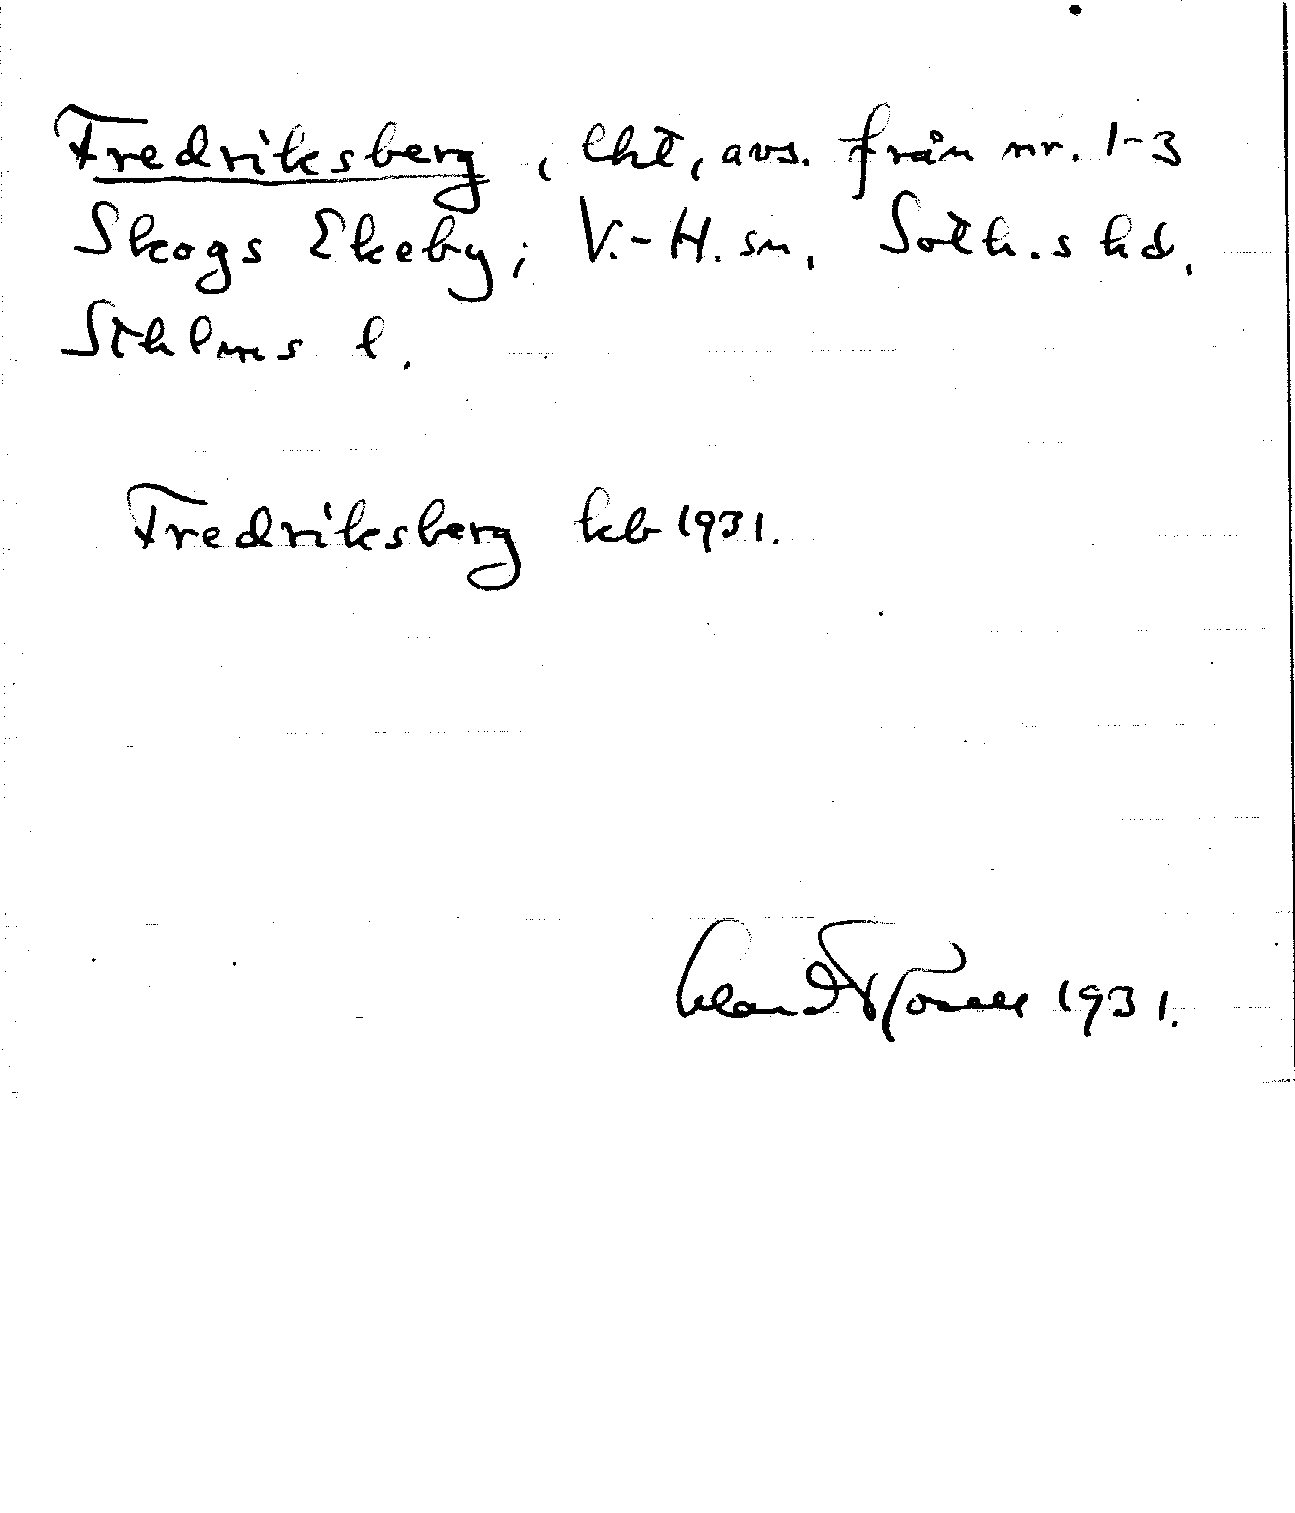 Fredriksberg, lht, avs. från nr. 1-3
Skogs Ekeby; V.-H. sn, Soth.s hd,
Sthlms l.
Fredriksberg kb 1931.
1931.